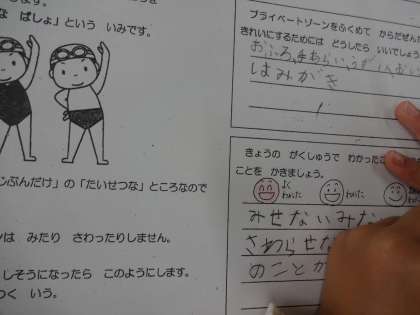 な ばしょ」という いみです。
じぶんだけ」の「たいせつな」ところなので
は みたり さわったりしません。
しそうになったら このようにします。
つく いう。
プライベートゾーンをふくめて からだぜん
きれいにするためには どうしたら いいでしょう
おふろ、手あらい、うが
はみがき
きょうの がくしゅうで わかったこ
ことを かきましょう。
よく わかった
わかった
わかっ
みせないみな
さわらせな
のことが